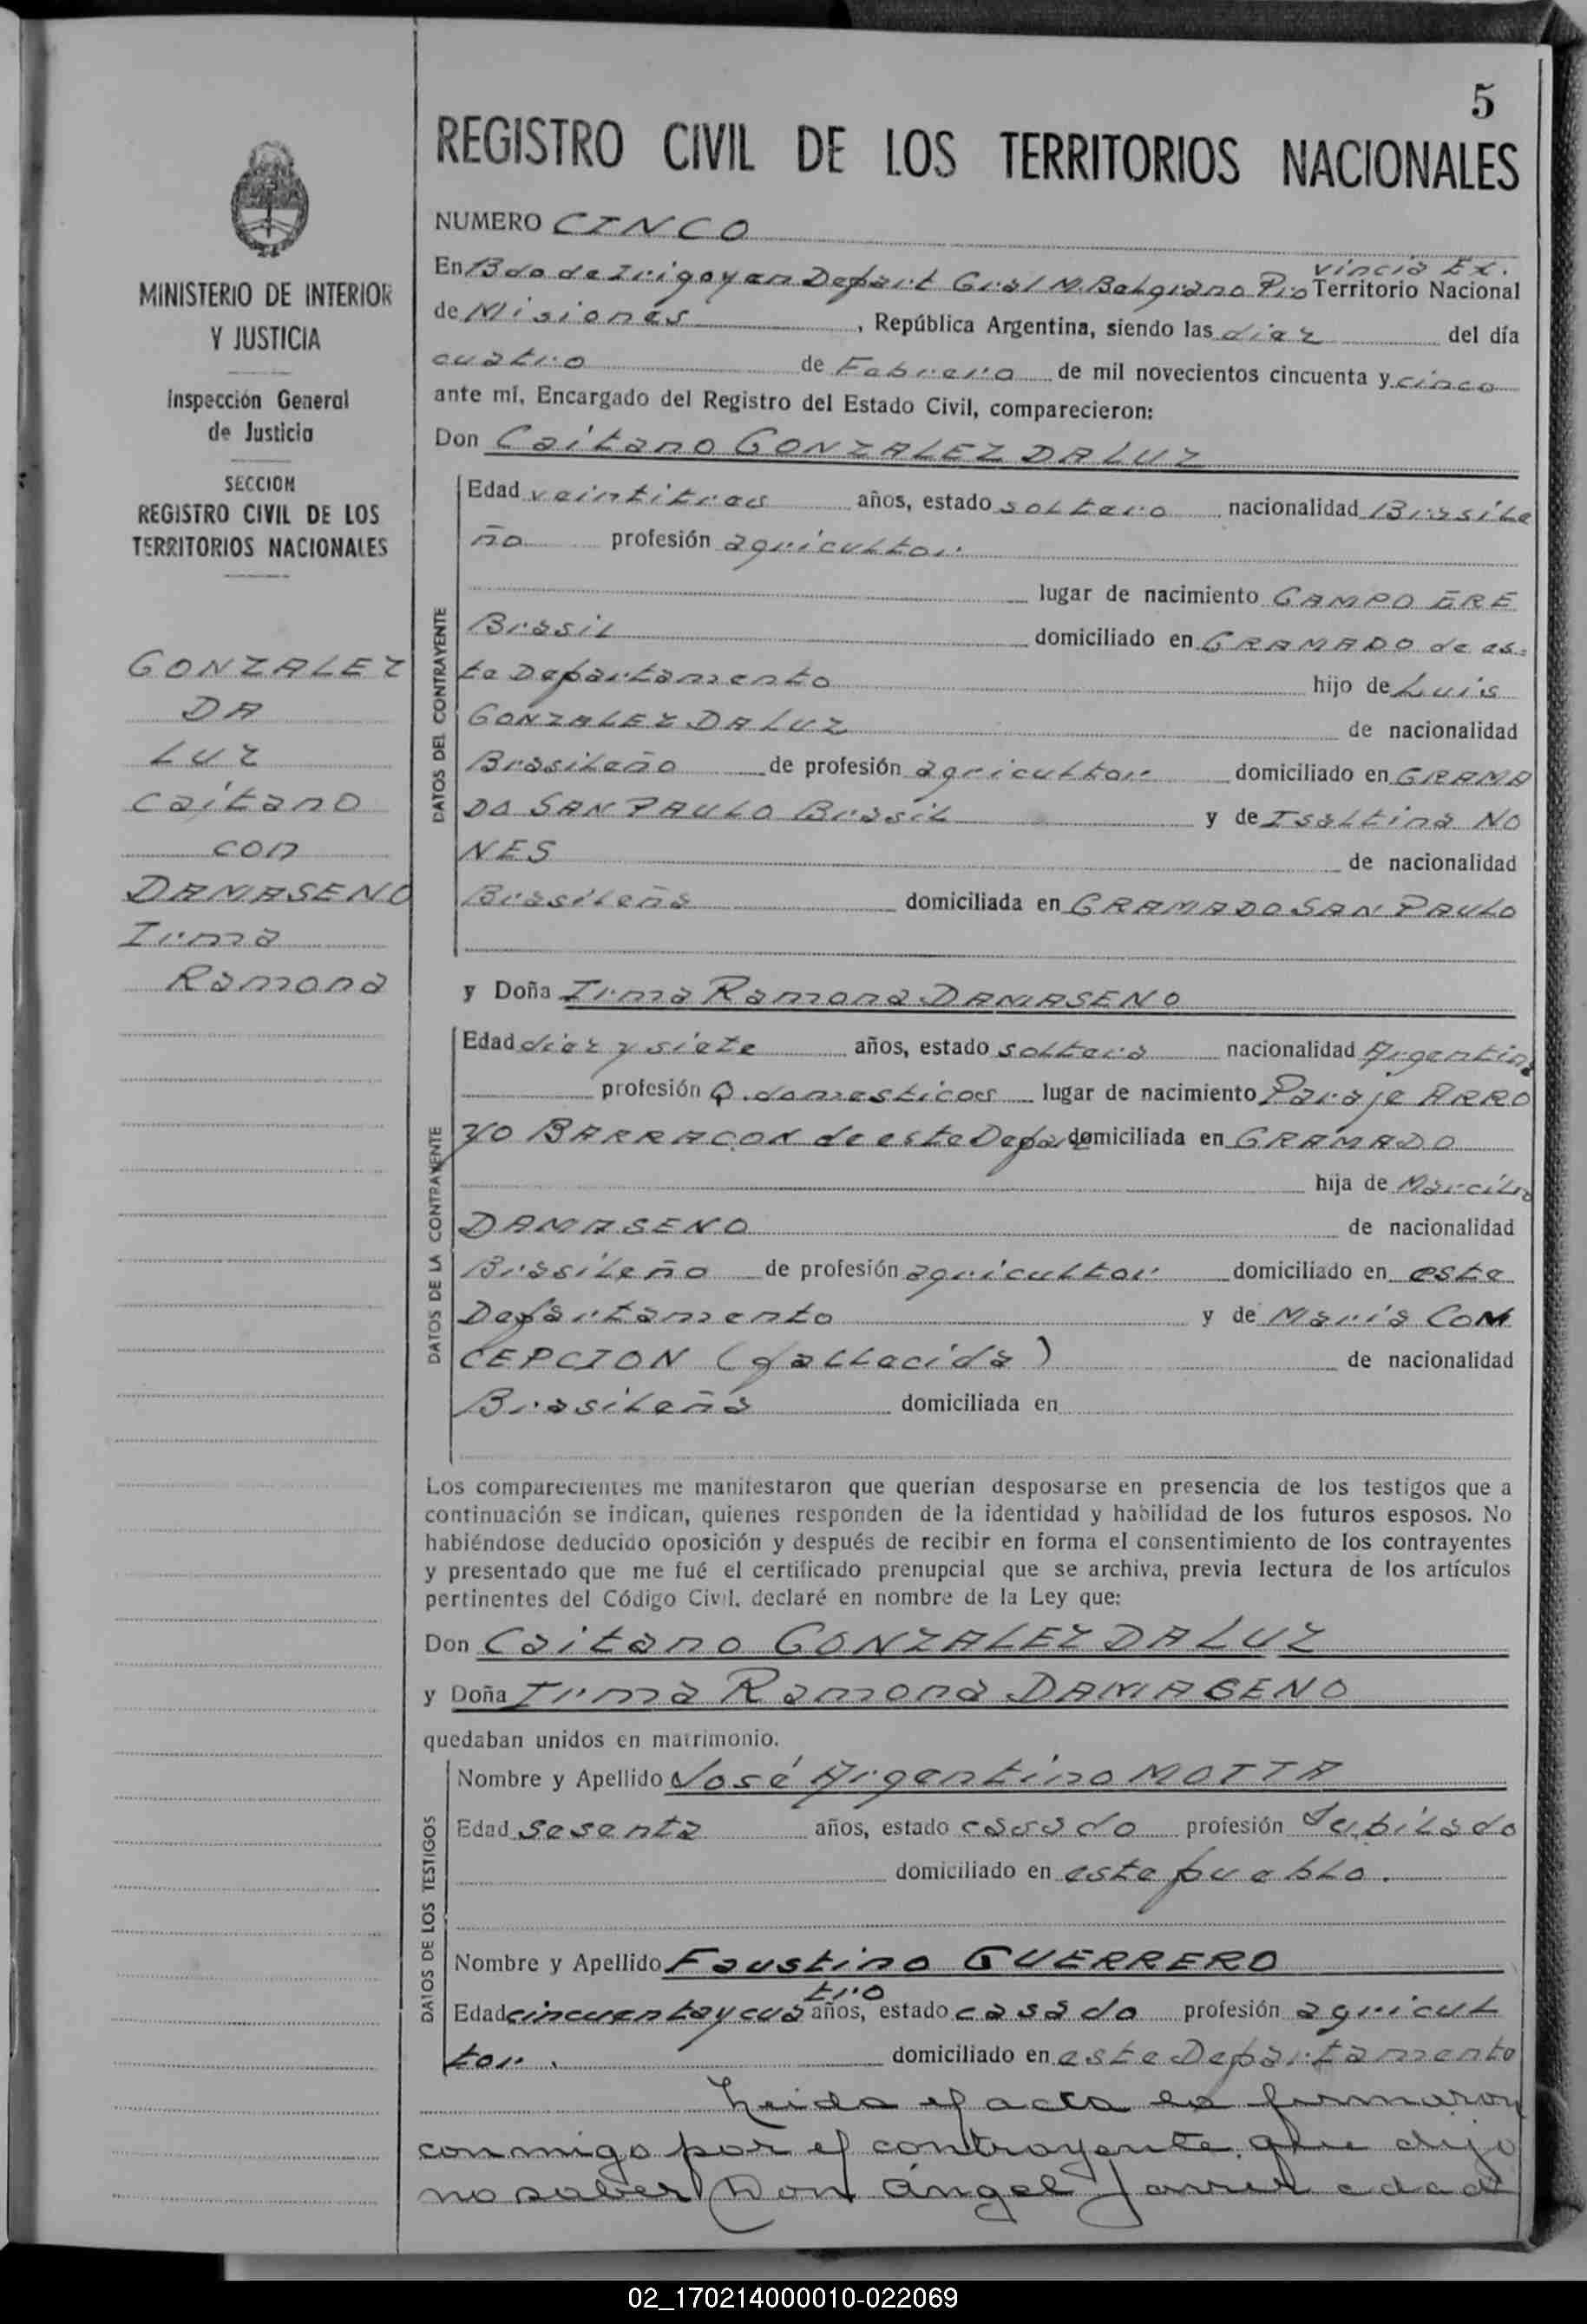 5
REGISTRO CIVIL DE LOS TERRITORIOS NACIONALES
MINISTERIO DE INTERIOR
Y JUSTICIA
Inspección General
de Justicia
SECCION
REGISTRO CIVIL DE LOS
TERRITORIOS NACIONALES
GONZALEZ
DA
LUZ
Caitano
con
DAMASENO
Irma
Ramona
NUMERO CINCO
vincia Ex.
En Bdo de Irigoyen Depart Gral M. Belgrano Pro Territorio Nacional
de Misiones, República Argentina, siendo las diez del día
cuatro de Febrero de mil novecientos cincuenta y cinco
ante mí, Encargado del Registro del Estado Civil, comparecieron:
Don Caitano GONZALEZ DA LUZ
DATOS DEL CONTRAYENTE
Edad veintitres años, estado soltero nacionalidad Brasile
ño profesión agricultor
lugar de nacimiento CAMPO ERE
Brasil domiciliado en GRAMADO de es=
te Departamento hijo de Luis
GONZALEZ DA LUZ de nacionalidad
Brasileño de profesión agricultor domiciliado en GRAMA
DO SAN PAULO Brasil y de Isaltina NO
NES de nacionalidad
Brasileña domiciliada en GRAMADO SAN PAULO
y Doña Irma Ramona DAMASENO
DATOS DE LA CONTRAYENTE
Edad diez y siete años, estado soltera nacionalidad Argentina
profesión Q. domesticos lugar de nacimiento Paraje ARRO
YO BARRACON de este Depart domiciliada en GRAMADO
hija de Marcilio
DAMASENO de nacionalidad
Brasileño de profesión agricultor domiciliado en este
Departamento y de Maria CON
CEPCION (fallecida) de nacionalidad
Brasileña domiciliada en
Los comparecientes me manifestaron que querían desposarse en presencia de los testigos que a
continuación se indican, quienes responden de la identidad y habilidad de los futuros esposos. No
habiéndose deducido oposición y después de recibir en forma el consentimiento de los contrayentes
y presentado que me fué el certificado prenupcial que se archiva, previa lectura de los artículos
pertinentes del Código Civil, declaré en nombre de la Ley que:
Don Caitano GONZALEZ DA LUZ
y Doña Irma Ramona DAMASENO
quedaban unidos en matrimonio.
DATOS DE LOS TESTIGOS
Nombre y Apellido José Argentino MOTTA
Edad sesenta años, estado casado profesión Jubilado
domiciliado en este pueblo.
Nombre y Apellido Faustino GUERRERO
tro
Edad cincuenta y cua años, estado casado profesión agricul
tor. domiciliado en este Departamento
Leida el acta la firmaron
conmigo por el contrayente que dijo
no saber Don Ángel Javier edad
02_170214000010-022069